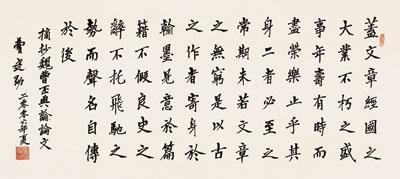 蓋文章經國之
大業不朽之盛
事年壽有時而
盡榮樂止乎其
身二者必至之
常期未若文章
之無窮是以古
之作者寄身於
翰墨見意於篇
籍不假良史之
辭不托飛馳之
勢而聲名自傳
於後
摘抄魏曹丕典論論文
二零零六年夏